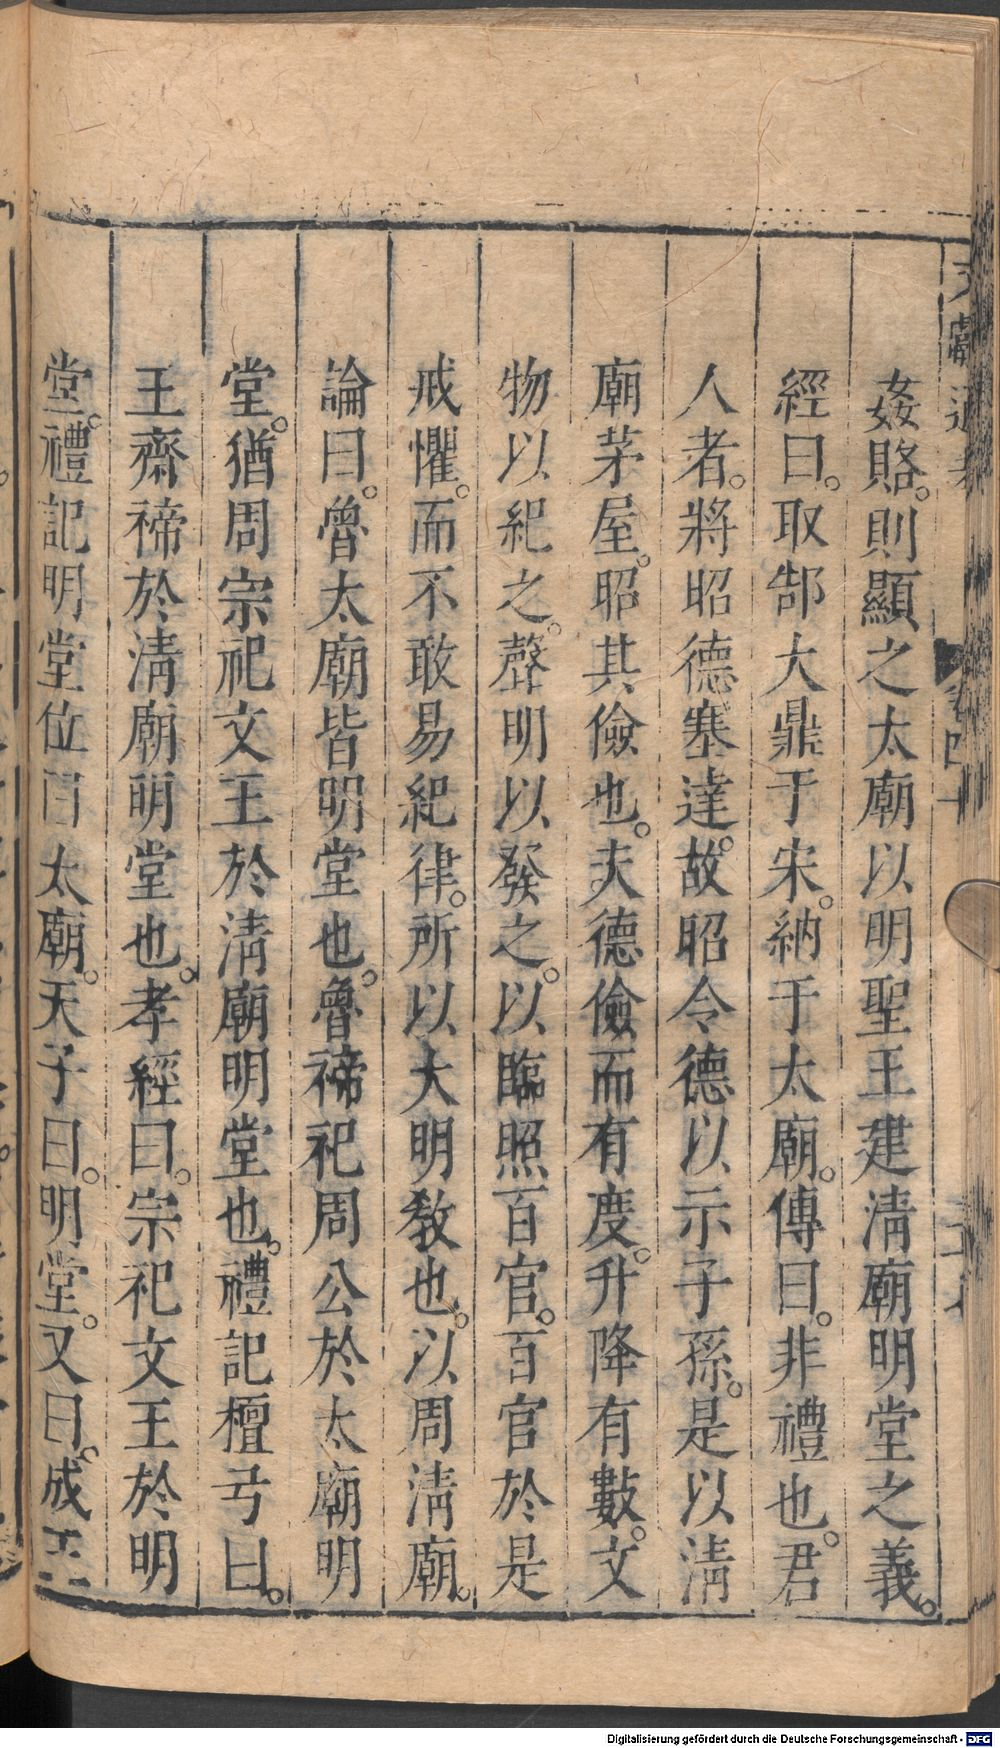 姦賂。則顯之太廟以明聖王建淸廟明堂之義。
經曰。取郜大鼎于宋。納于太廟。傳曰。非禮也。君
人者。將昭德塞違。故昭令德以示子孫。是以淸
廟茅屋。昭其儉也。夫德儉而有度。升降有數。文
物以紀之。聲明以發之。以臨照百官。百官於是
戒懼。而不敢易紀律。所以大明敎也。以周淸廟。
論曰。魯太廟皆明堂也。魯禘祀周公於太廟明
堂。猶周宗祀文王於淸廟明堂也。禮記檀弓曰。
王齋禘於淸廟明堂也。孝經曰。宗祀文王於明
堂。禮記明堂位曰太廟。天子曰。明堂。又曰。成王
Digitalisierung gefördert durch die Deutsche Forschungsgemeinschaft - DFG